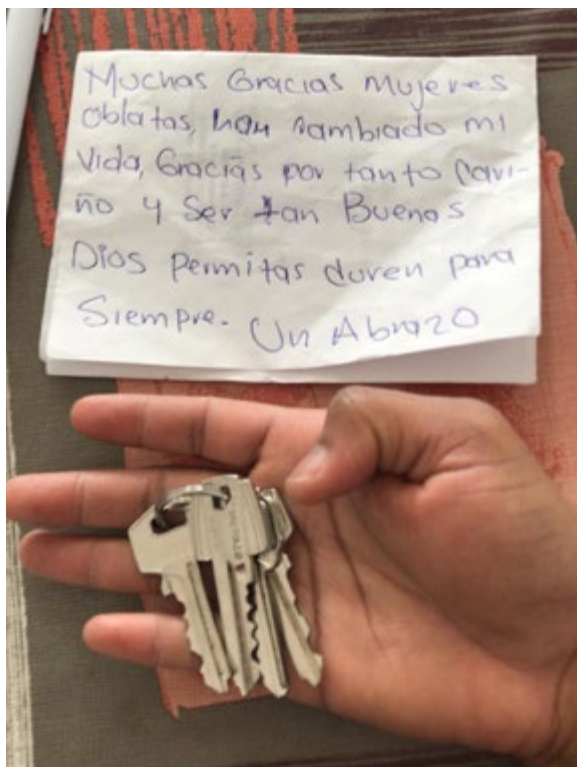 Muchas Gracias Mujeres
oblatas, han cambiado mi
vida, Gracias por tanto Cari-
ño y Ser tan Buenas
Dios permitas duren para
Siempre. Un Abrazo